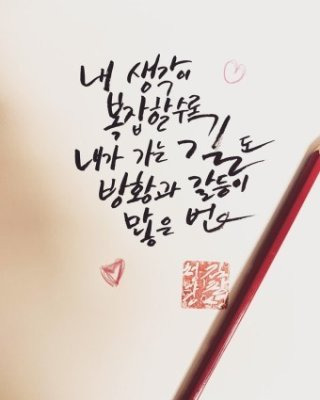 내 생각이
복잡할수록
내가 가는 길도
방황과 갈등이
많은 법